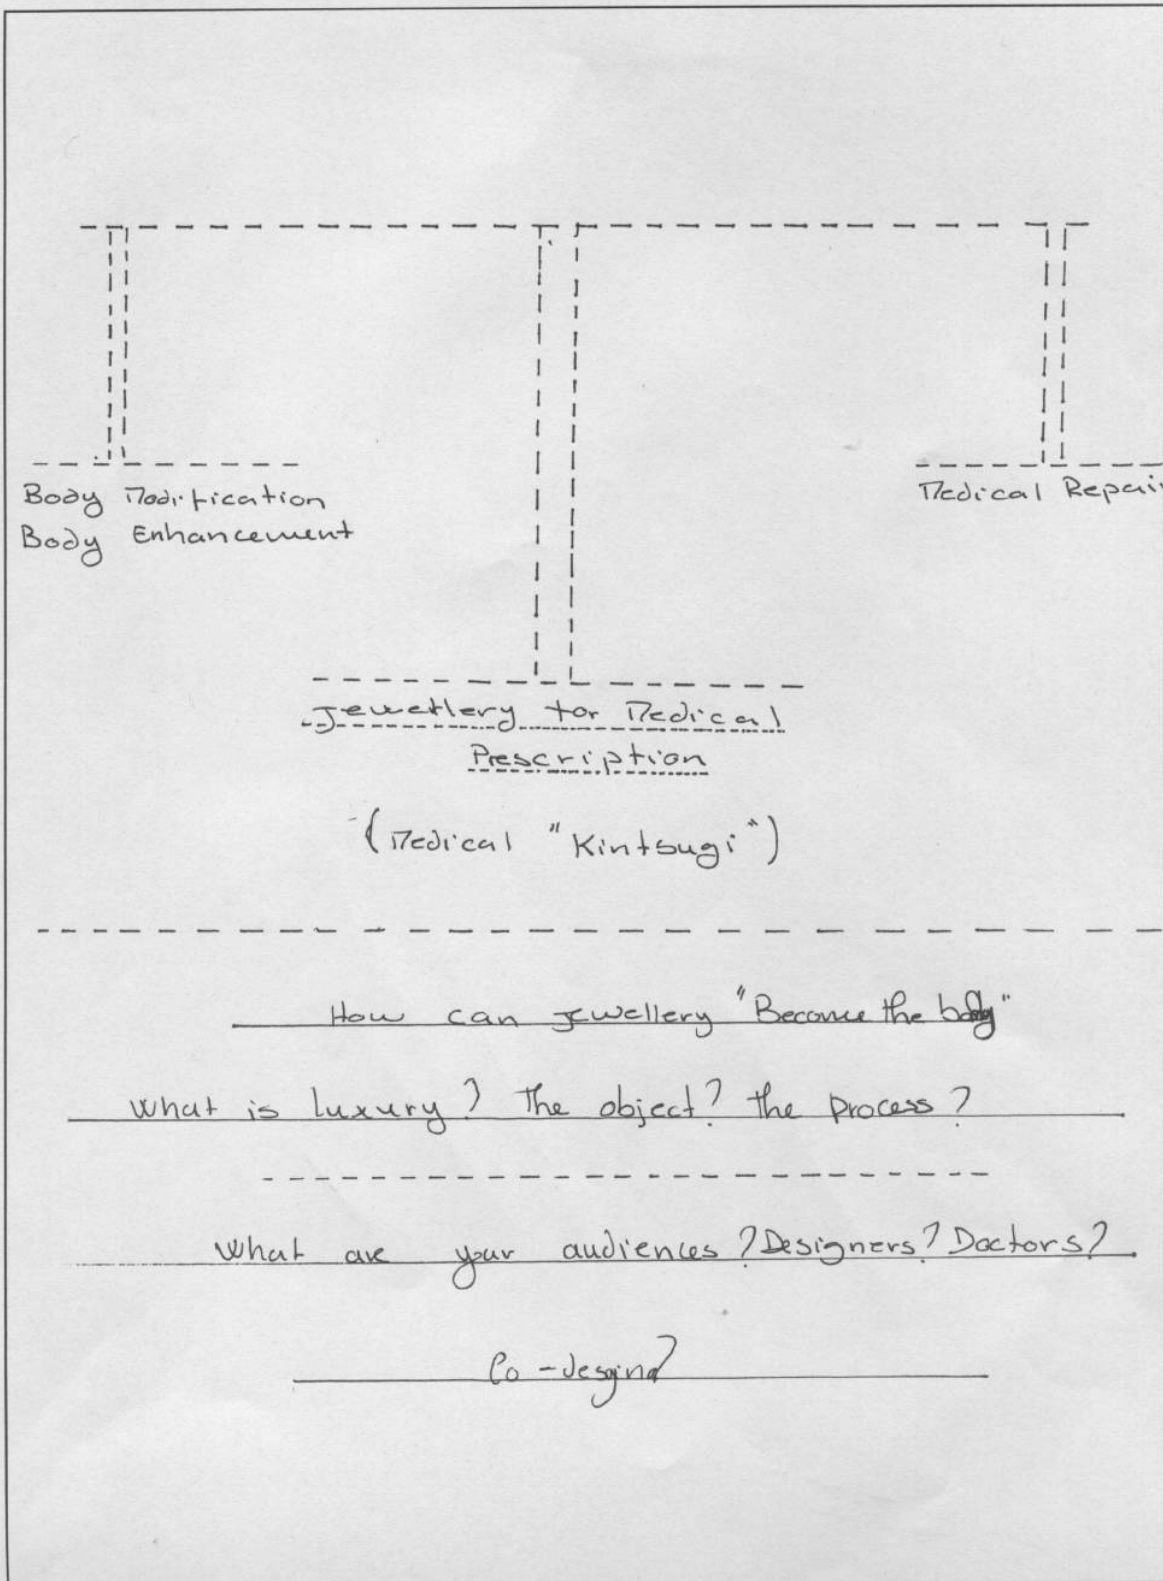 Body Modification
Body Enhancement
Medical Repair
Jewellery for Medical
Prescription
(Medical "Kintsugi")
How can jewellery "Become the body"
What is luxury? The object? the process?
What are your audiences? Designers? Doctors?
Co-desgin?